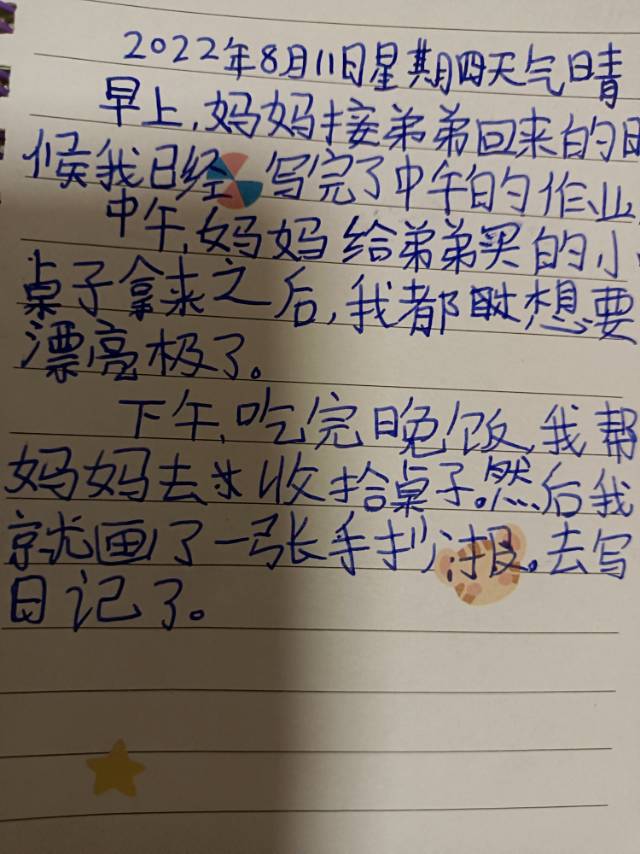 2022年8月11日星期四天气晴
早上,妈妈接弟弟回来的时
候我已经写完了中午的作业,
中午,妈妈给弟弟买的小
桌子拿来之后,我都想要
漂亮极了。
下午,吃完晚饭,我帮
妈妈去收拾桌子。然后我
就画了一张手抄报。去写
日记了。